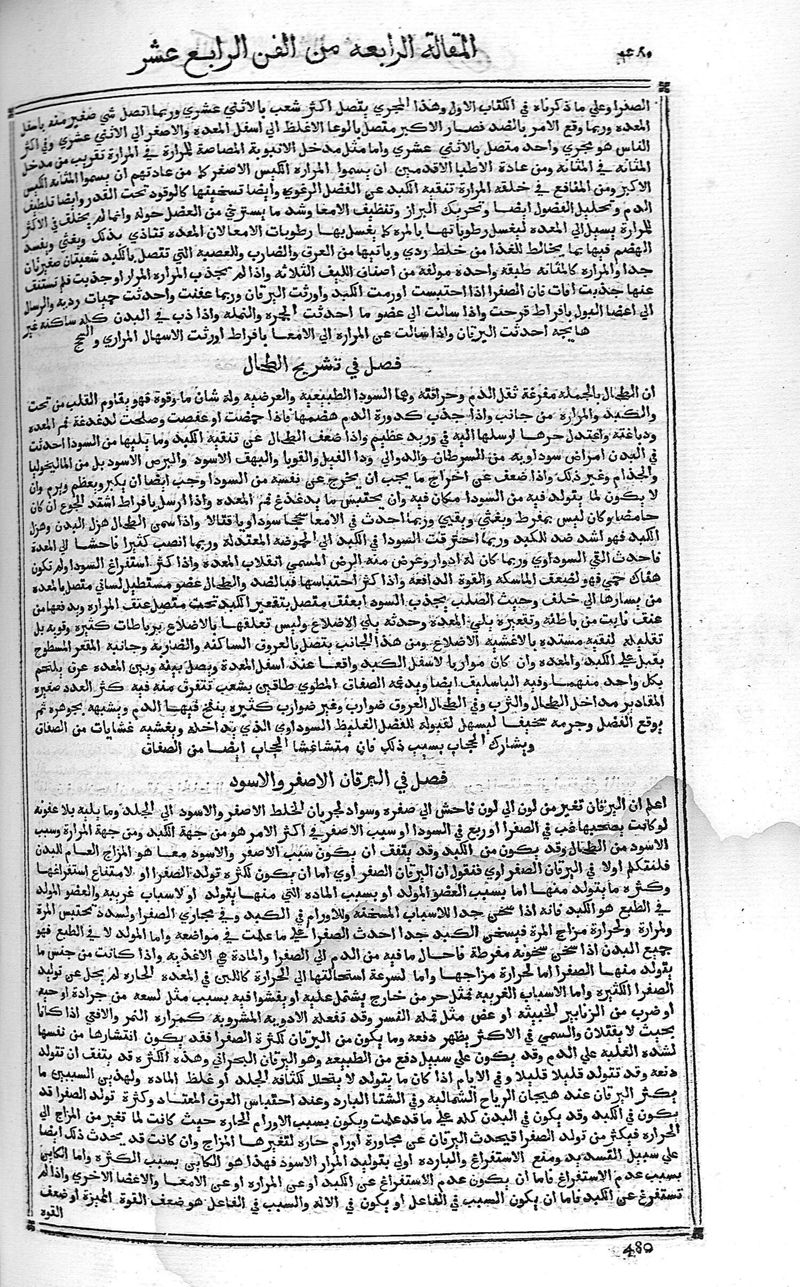 المقالة الرابعه من الفن الرابع عشر
٤٨٠
الصفرا وعلي ما ذكرناه في الكتاب الاول وهذا المجري يتصل اكثر شعب بالاثني عشري وربما اتصل شي صغير منه باسفل
المعده وربما وقع الامر بالضد فصار الاكبر متصل بالوعا الاغلظ الي اسفل المعده والاصغر الي الاثني عشري وفي اكثر
الناس هو مجري واحد متصل بالاثني عشري واما مثل مدخل الانبوبة المصاصة للمرارة في المرارة تقريب من مدخل
المثانه في المثانة ومن عادة الاطبا الاقدمين ان يسموا المراره الكيس الاصغر كما من عادتهم ان يسموا المثانه الكيس
الاكبر ومن المنافع في خلقه المرارة تنقيه الكبد عن الفضل الرغوي وايضا تسخينها كالوقود تحت القدر وايضا تلطيف
الدم وتحليل الفضول ايضا وتحريك البراز وتنظيف الامعا وشد ما يسترخي من العضل حوله وانما لم يخلف في الاكثر
للمرارة سبيل الي المعده ليغسل رطوباتها بالمره كما يغسل بها رطوبات الامعا لان المعده تتاذي بذلك ويغثي ويفسد
الهضم فيها بما يخالط للغذا من خلط ردي وياتيها من العرق والضارب وللعصبه التي تتصل بالكبد شعبتان صغيرتان
جدا والمراره كالمثانه طبقه واحده مولفه من اصناف الليف الثلاثه واذا لم يجذب المراره المرار او جذبت فلم تستنف
عنها جذبت افات فان الصفرا اذا احتبست اورمت الكبد واورثت اليرقان وربما عفنت واحدثت حميات رديه واذا سال
الي اعضا البول بافراط قرحت واذا سالت الي عضو ما احدثت الحمره والنمله واذا دب في البدن كله ساكنه غير
هايجه احدثت اليرقان واذا سالت عن المراره الي الامعا بافراط اورثت الاسهال المراري والسحج
فصل في تشريح الطحال
ان الطحال بالجمله مفرغة ثفل الدم وحراقته وهما السودا الطبيعيه والعرضيه وله شان ما وقوة فهو يقاوم القلب من تحت
والكبد والمراره من جانب واذا جذب كدورة الدم هضمها فاذا حمضت او عفصت وصلحت لدغدغة فم المعده
ودباغته واعتدل حرها ارسلها اليه في وريد عظيم واذا ضعف الطحال عن تنقيه الكبد وما يليها من السودا احدثت
في البدن امراض سوداويه من السرطان والدوالي ودا الفيل والقوبا والبهق الاسود والبرص الاسود بل من الماليخوليا
والجذام وغير ذلك واذا ضعف عن اخراج ما يجب ان يخرج عن نفسه من السودا وجب ايضا ان يكبر ويعظم ويرم وان
لا يكون لما يتولد فيه من السودا مكان فيه وان يحتبس ما يدغدغ فم المعده واذا ارسل بافراط اشتد الجوع ان كان
حامضا وكان ليس بمفرط ويغثي ويقيي وربما احدث في الامعا سحجا سوداويا قتالا واذا سمن الطحال هزل البدن وهزل
الكبد فهو اشد ضد للكبد وربما احترقت السودا في الكبد الي الحموضه المعتدله وربما انصب كثيرا فاحشا الي المعدة
فاحدث القي السوداوي وربما كان له ادوار وعرض منه المرض المسمي انقلاب المعده واذا كثر استفراغ السودا ولم تكون
هناك حمي فهو لضعف الماسكة والقوة الدافعه واذا كثر احتباسها فبالضد والطحال عضو مستطيل لساني متصل بالمعده
من يسارها الي خلف وحيث الصلب يجذب السودا بعنق متصل بتقعير الكبد تحت متصل عنف المراره ويدفعها من
عنف نابت من باطنه وتقعيره يلي المعدة وحدبته يلي الاضلاع وليس تعلقها بالاضلاع برباطات كثيره وقويه بل
تقليله لنفيه مستده بالاغشيه الاضلاع ومن هذا الجانب يتصل بالعروق الساكنه والضاربة وجانبة المقعر المسطوح
يقبل علي الكبد والمعده وان كان موازيا لاسفل الكبد واقعا عند اسفل المعدة ويصل بينه وبين المعده عرق يلتحم
بكل واحد منهما وفيه الباسليف ايضا ويدعمه الصفاق المطوي طاقين بشعب تتفرق منه فيه كثر العدد صغيره
المقادير مداخل الطحال والثرب وفي الطحال العروق ضوارب وغير ضوارب كثيره ينضج فيها الدم ويشبهه بجوهره ثم
يوقع الفضل وجرمه سخيفا ليسهل لقبوله للفضل الغليظ السوداوي الذي يتداخله ويغشيه غشايات من الصفاق
ويشارك الحجاب بسبب ذلك فان متشاغشا الحجاب ايضا من الصفاق
فصل في اليرقان الاصفر والاسود
اعلم ان اليرقان تغير من لون الي لون فاحش الي صفره وسواد لجريان الخلط الاصفر والاسود الي الجلد وما يليه بلا عفونه
لو كانت يصحبها غب في الصفرا او ربع في السودا وسبب الاصفر في اكثر الامر هو من جهة الكبد ومن جهة المرارة وسبب
الاسود من الطحال وقد يكون من الكبد وقد يتفف ان يكون سبب الاصفر والاسود معا هو المزاج العام للبدن
فلنتكلم اولا في اليرقان الصفراوي فنقول ان اليرقان الصفراوي اما ان يكون لكثرة تولد الصفرا او لامتناع استفراغها
وكثره ما يتولد منها اما بسبب العضو المولد او بسبب الماده التي منها يتولد او لاسباب غريبه والعضو المولد
في الطبع هو الكبد فانه اذا سخن جدا للاسباب المسخنه وللاورام في الكبد وفي مجاري الصفرا ولسدد تحتبس المرة
والمرارة ولحرارة مزاج المرة فيسخن الكبد جدا احدث الصفرا علي ما علمت في مواضعه واما المولد لا في الطبع فهو
جميع البدن اذا سخن سخونه مفرطة فاحال ما فيه من الدم الي الصفرا والمادة هي الاغذيه واذا كانت من جنس ما
يتولد منها الصفرا اما لحرارة مزاجها واما لسرعة استحالتها الي الحرارة كاللبن في المعده الحاره لم يخل عن توليد
الصفرا الكثيره واما الاسباب الغريبه فمثل حر من خارج يشتمل عليه او يغشوا فيه بسبب مثل لسعه من جرادة او حيه
او ضرب من الزنابير الخبيثه او عض مثل قمله النسر وقد تفعله الادويه المشروبه كمراره النمر والافعي اذا كانا
بحيث لا يقتلان والسمي في الاكثر يظهر دفعه وما يكون من اليرقان لكثرة الصفرا فقد يكون انتشارها من نفسها
لشده الغلبه علي الدم وقد يكون علي سبيل دفع من الطبيعه وهو اليرقان البحراني وهذه الكثره قد يتفف ان تتولد
دفعه وقد تتولد قليلا قليلا وفي الايام اذا كان ما يتولد لا يتحلل لكثافه الجلد او غلظ الماده ولهذين السببين ما
يكثر اليرقان عند هيجان الرياح الشماليه وفي الشتا البارد وعند احتباس العرق المعتاد وكثرة تولد الصفرا قد
يكون في الكبد وقد يكون في البدن كله علي ما قد علمت ويكون بسبب الاورام الحاره حيث كانت لما تغير من المزاج الي
الحراره فيكثر من تولد الصفرا فيحدث اليرقان عن مجاورة اورام حاره لتغيرها المزاج وان كانت قد يحدث ذلك ايضا
علي سبيل التسديد ومنع الاستفراغ والبارده اولي بتوليد المرار الاسود فهذا هو الكاين بسبب الكثره واما الكاين
بسبب عدم الاستفراغ فاما ان يكون عدم الاستفراغ عن الكبد او عن المراره او عن الامعا والاعضا الاخري واذا لم
تستفرغ عن الكبد فاما ان يكون السبب في الفاعل او يكون في الاله والسبب في الفاعل هو ضعف القوه المميزة او ضعف
القوه
480